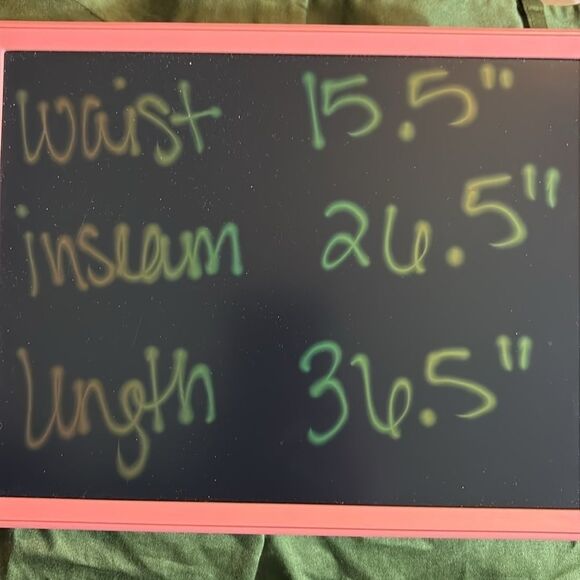 waist 15.5"
inseam 26.5"
length 36.5"